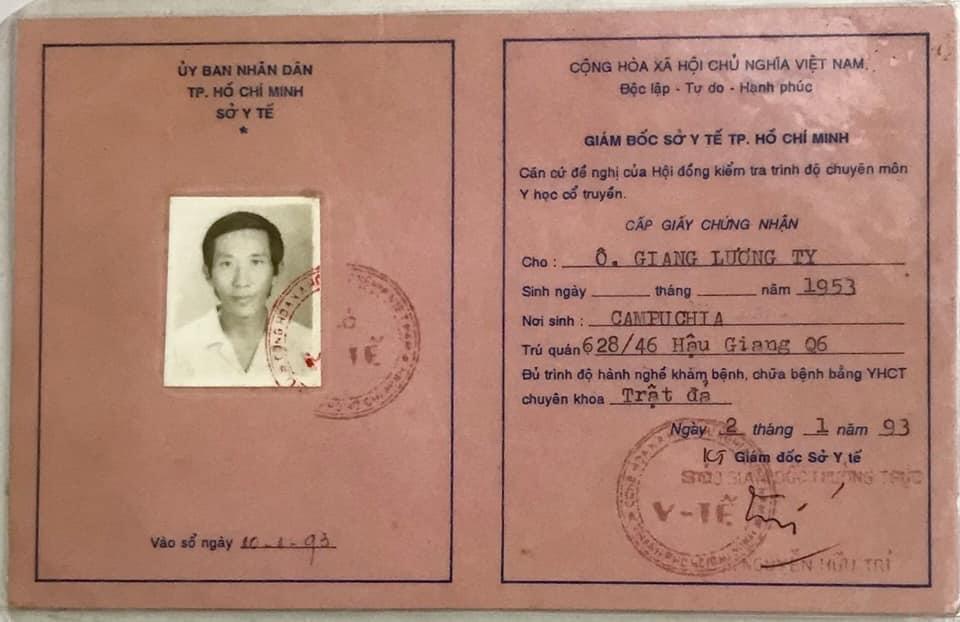 ỦY BAN NHÂN DÂN
TP. HỒ CHÍ MINH
SỞ Y TẾ
*
Y TẾ
Vào sổ ngày 10-1-93
CỘNG HÒA XÃ HỘI CHỦ NGHĨA VIỆT NAM
Độc lập - Tự do - Hạnh phúc
GIÁM ĐỐC SỞ Y TẾ TP. HỒ CHÍ MINH
Căn cứ đề nghị của Hội đồng kiểm tra trình độ chuyên môn
Y học cổ truyền.
CẤP GIẤY CHỨNG NHẬN
Cho : Ô. GIANG LƯƠNG TY
Sinh ngày ______ tháng ______ năm 1953
Nơi sinh : CAMPUCHIA
Trú quán 628/46 Hậu Giang Q6
Đủ trình độ hành nghề khám bệnh, chữa bệnh bằng YHCT
chuyên khoa Trật đả
Ngày 2 tháng 1 năm 93
KT Giám đốc Sở Y tế
PHÓ GIÁM ĐỐC THƯỜNG TRỰC
Y-TẾ
NGUYỄN HỮU TRÍ